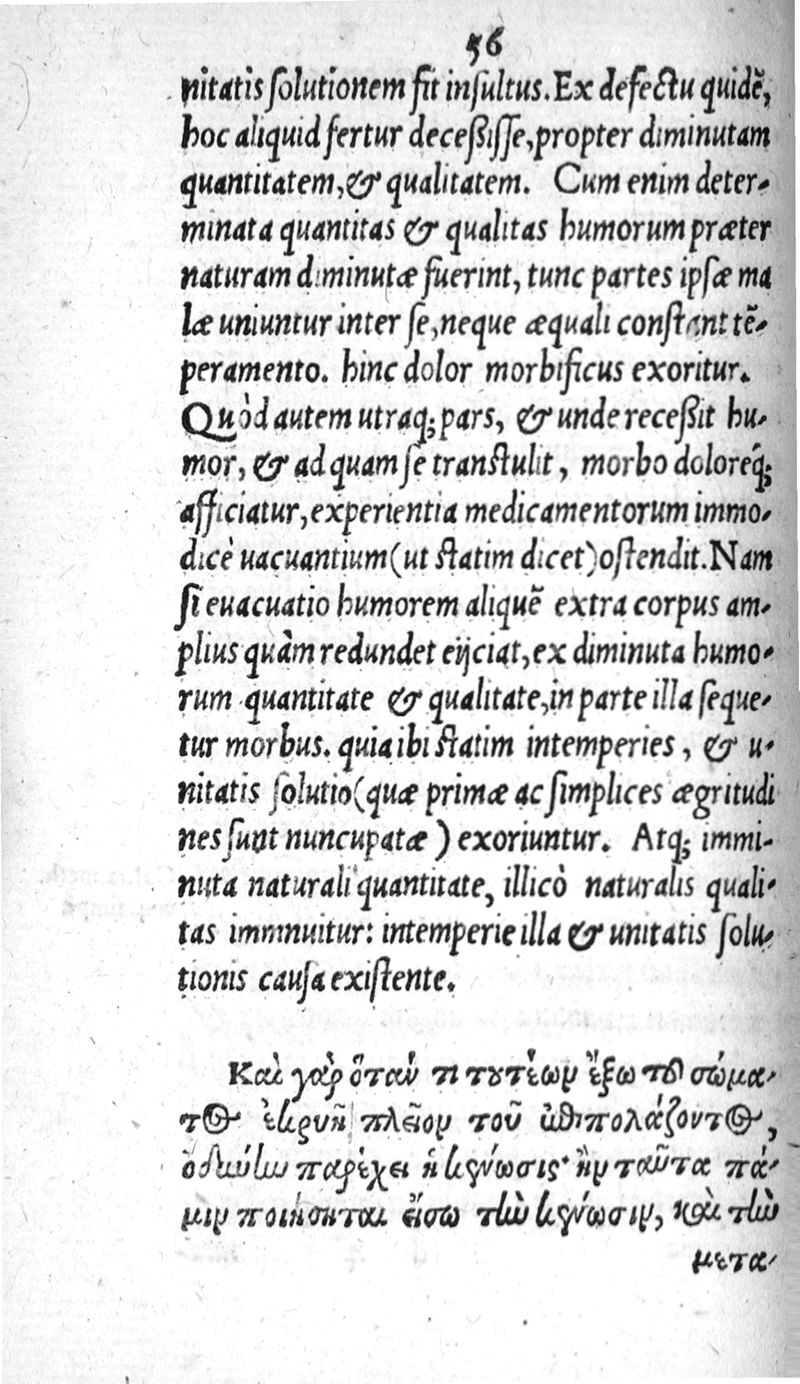 56
nitatis solutionem fit insultus. Ex defectu quidē,
hoc aliquid fertur decessisse, propter diminutam
quantitatem, & qualitatem. Cum enim deter-
minata quantitas & qualitas humorum præter
naturam diminutæ fuerint, tunc partes ipsæ ma
læ uniuntur inter se, neque æquali constant tē-
peramento. hinc dolor morbificus exoritur.
Quòd autem utraq; pars, & unde recessit hu-
mor, & ad quam se transtulit, morbo doloreq́;
afficiatur, experientia medicamentorum immo-
dicè uacuantium (ut statim dicet) ostendit. Nam
si euacuatio humorem aliquē extra corpus am-
plius quàm redundet eijciat, ex diminuta humo-
rum quantitate & qualitate, in parte illa seque-
tur morbus. quia ibi statim intemperies, & u-
nitatis solutio (quæ primæ ac simplices ægritudi
nes sunt nuncupatæ) exoriuntur. Atq; immi-
nuta naturali quantitate, illicò naturalis quali-
tas imminuitur: intemperie illa & unitatis solu-
tionis causa existente.
Καὶ γὰρ ὅταν τι τουτέων ἔξω τοῦ σώμα-
τος ἐκρυῇ πλεῖον τοῦ ἐπιπολάζοντος,
ὀδύνην παρέχει ἡ κένωσις· ἢν ταῦτα πά-
λιν ποιήσηται ἔσω τὴν κένωσιν, καὶ τὴν
μετα-